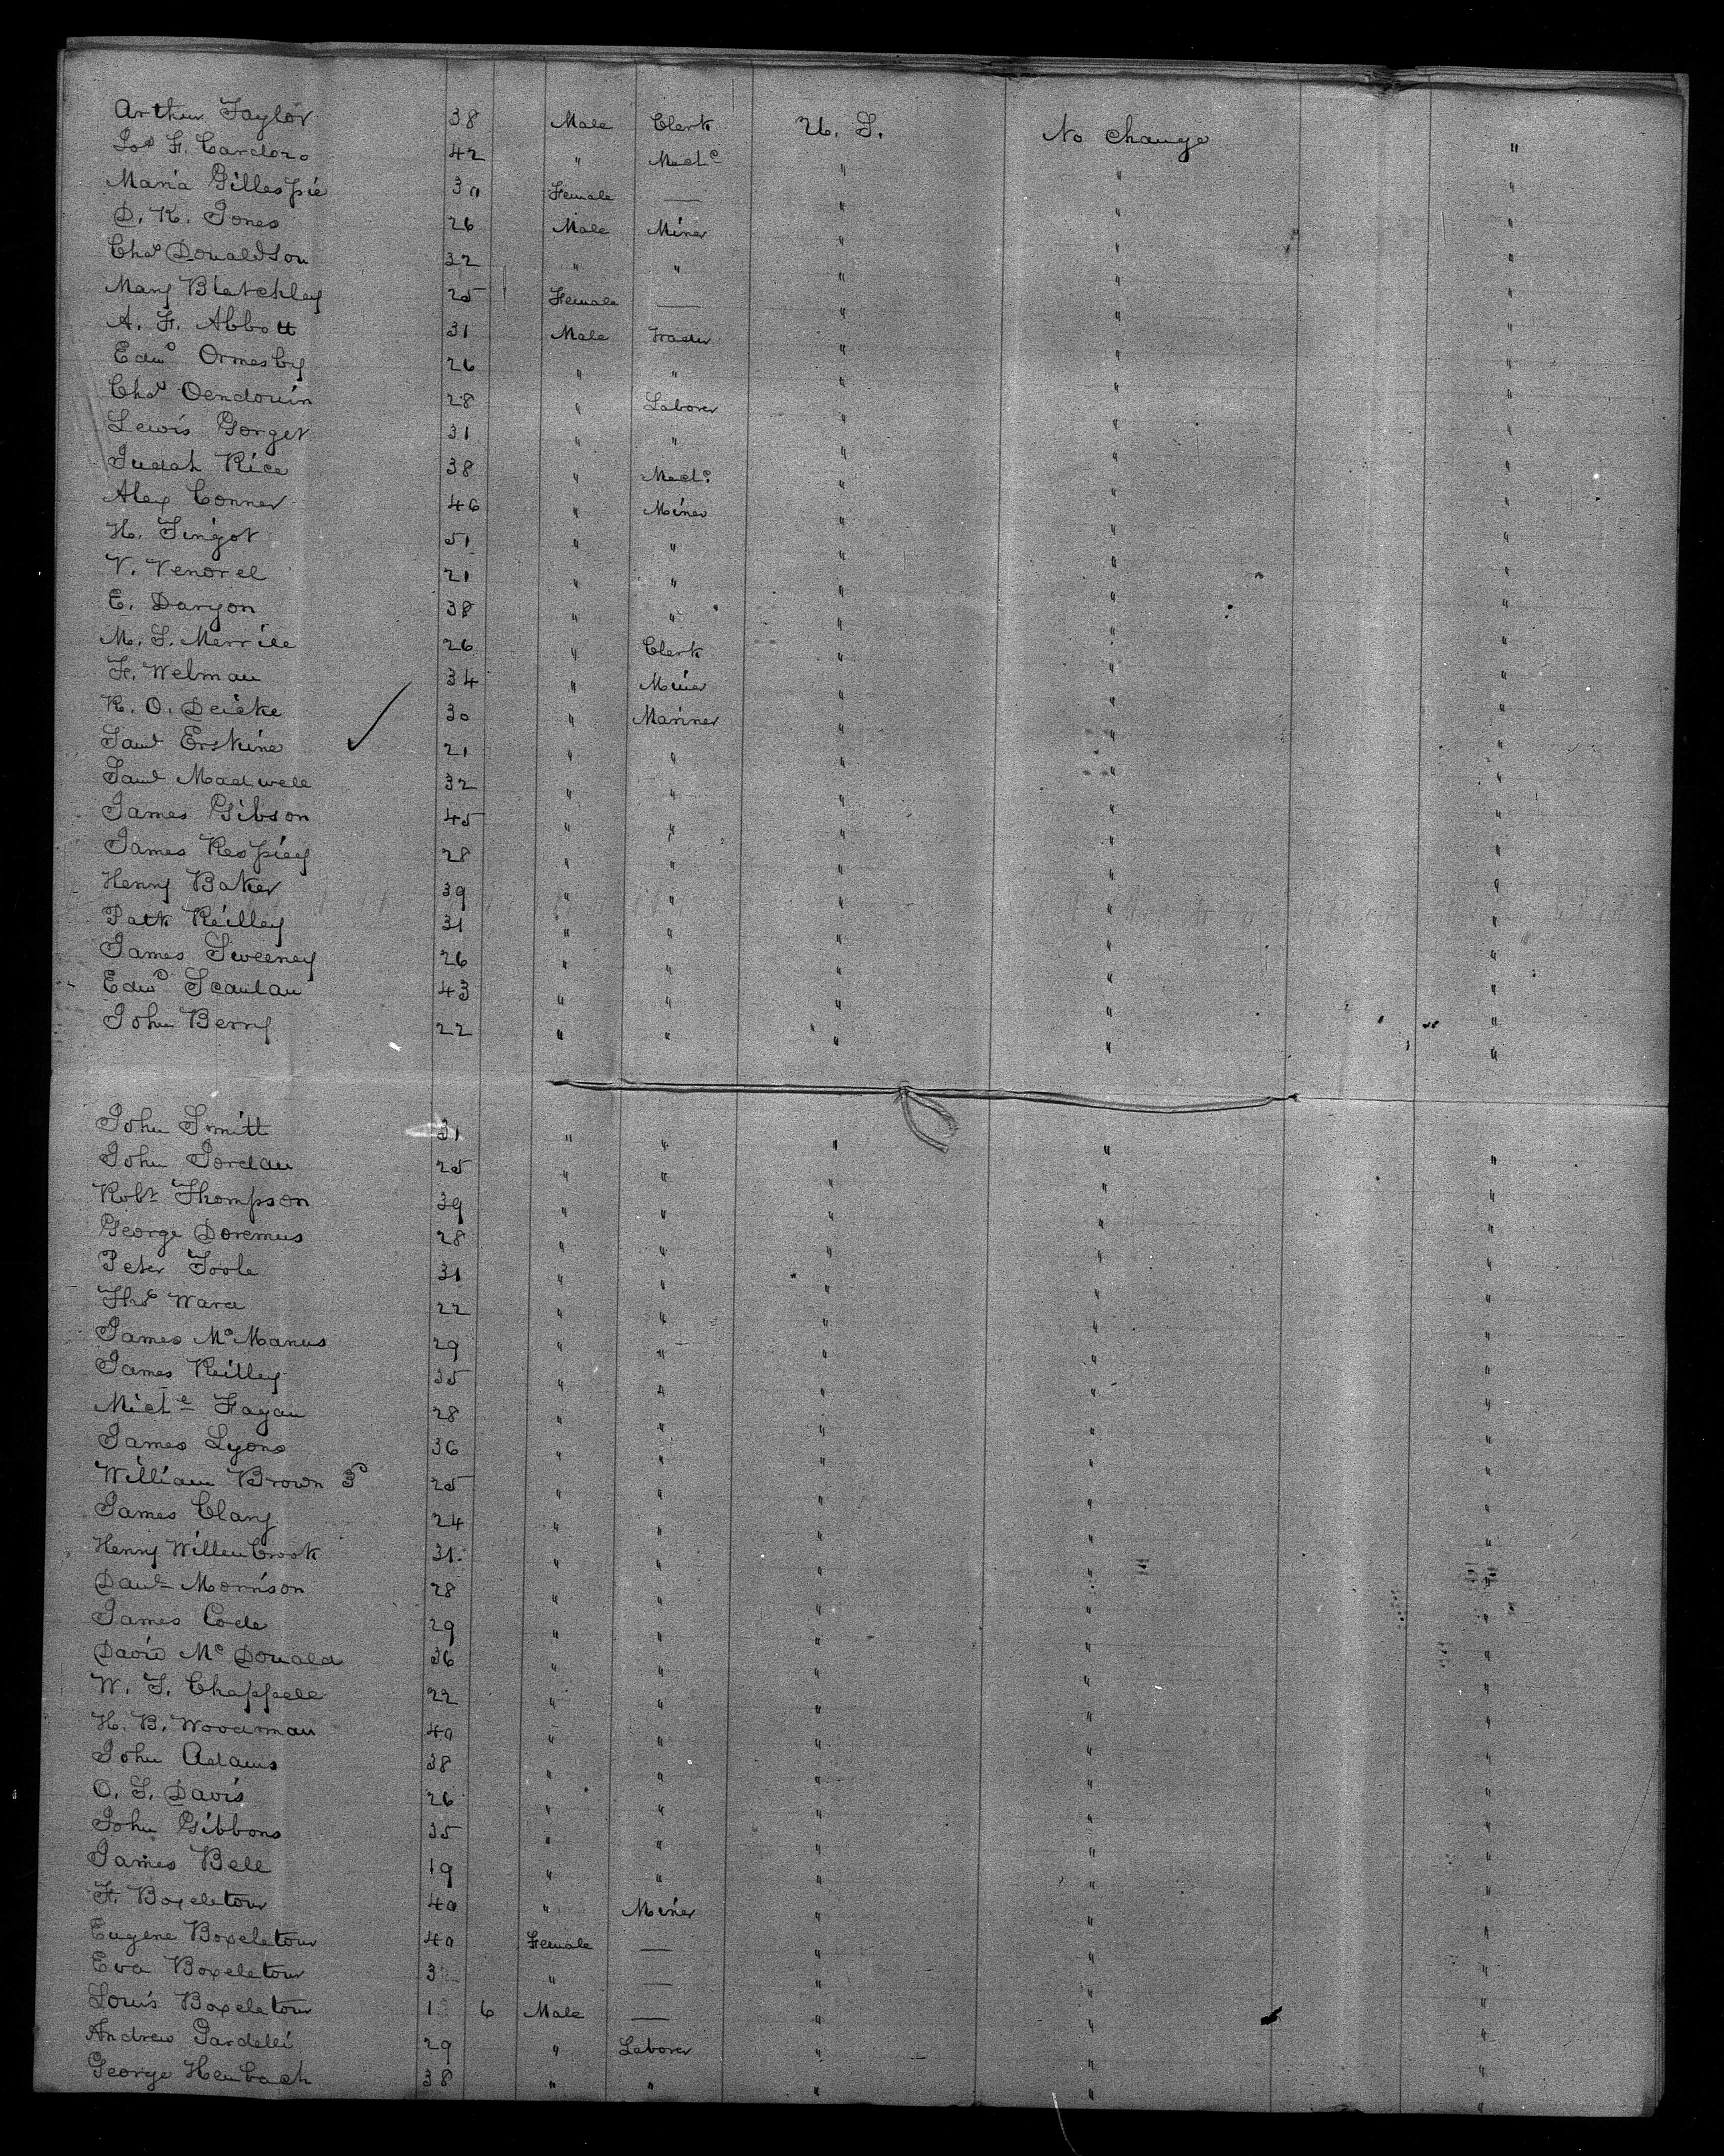 Arthur Taylor 38 Male Clerk U. S. No change "
Jos F. Cardozo 42 " Mechc " " "
Maria Gillespie 30 Female — " " "
D. K. Jones 26 Male Miner " " "
Chas Donaldson 32 " " " " "
Mary Blatchley 25 Female — " " "
A. F. Abbott 31 Male Trader " " "
Edwd Ormesby 26 " " " " "
Chas Oendouin 28 " Laborer " " "
Lewis Gorget 31 " " " " "
Judah Rice 38 " Mechc " " "
Alex Conner 46 " Miner " " "
H. Singot 51 " " " " "
V. Venorel 21 " " " " "
E. Daryon 38 " " " " "
M. S. Merrill 26 " Clerk " " "
F. Welman 34 " Miner " " "
K. O. Deicke 30 " Mariner " " "
Saml Erskine 21 " " " " "
Saml Madwell 32 " " " " "
James Gibson 45 " " " " "
James Respiey 28 " " " " "
Henry Baker 39 " " " " "
Patk Reilley 31 " " " " "
James Sweeney 26 " " " " "
Edwd Scanlan 43 " " " " "
John Berry 22 " " " " "
John Smith 31 " " " " "
John Jordan 25 " " " " "
Robt Thompson 39 " " " " "
George Doremus 28 " " " " "
Peter Toole 31 " " " " "
Thos Ward 22 " " " " "
James McManus 29 " " " " "
James Reilley 35 " " " " "
Michl Fagan 28 " " " " "
James Lyons 36 " " " " "
William Brown 3d 25 " " " " "
James Clany 24 " " " " "
Henry Willenbrook 31 " " " " "
Danl Morrison 28 " " " " "
James Code 29 " " " " "
David McDonald 36 " " " " "
W. S. Chappell 22 " " " " "
H. B. Woodman 40 " " " " "
John Adams 38 " " " " "
O. S. Davis 26 " " " " "
John Gibbons 35 " " " " "
James Bell 19 " " " " "
F. Boxeletour 40 " Miner " " "
Eugene Boxeletour 40 Female — " " "
Eva Boxeletour 3 " — " " "
Louis Boxeletour 1 6 Male — " " "
Andrew Pardelli 29 " Laborer " " "
George Heubach 38 " " " " "